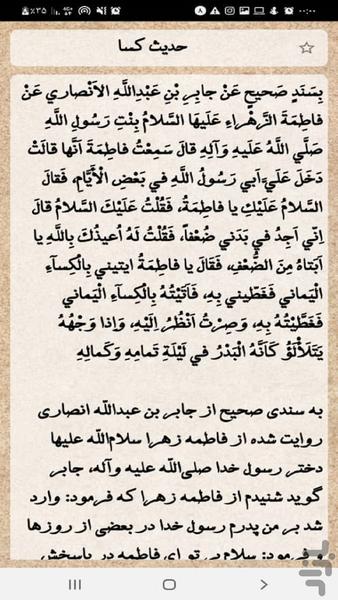 ٪۳۵
۰۰:۰۰
حدیث کسا
بِسَنَدٍ صَحیحٍ عَنْ جابِرِ بْنِ عَبْدِاللَّهِ الأَنْصاریِ عَنْ
فاطِمَةَ الزَّهْراءِ عَلَیْهَا السَّلامُ بِنْتِ رَسُولِ اللَّهِ
صَلَّی اللَّهُ عَلَیهِ وَآلِهِ قالَ سَمِعْتُ فاطِمَةَ اَنَّها قالَتْ
دَخَلَ عَلَیَّ اَبی رَسُولُ اللَّهِ فی بَعْضِ الْأَیَّامِ، فَقالَ
السَّلامُ عَلَیْكِ یا فاطِمَةُ، فَقُلْتُ عَلَیْكَ السَّلامُ قالَ
اِنّی اَجِدُ فی بَدَنی ضُعْفاً، فَقُلْتُ لَهُ اُعیذُكَ بِاللَّهِ یا
اَبَتاهُ مِنَ الضُّعْفِ، فَقَالَ یا فاطِمَةُ ایتینی بِالْكِسآءِ
الْیَمانی فَغَطّینی بِهِ، فَاَتَیْتُهُ بِالْكِسآءِ الْیَمانی
فَغَطَّیْتُهُ بِهِ، وَصِرْتُ اَنْظُرُ اِلَیْهِ، وَاِذا وَجْهُهُ
یَتَلَأْلَؤُ كَاَنَّهُ الْبَدْرُ فی لَیْلَةِ تَمامِهِ وَكَمالِهِ
به سندی صحیح از جابر بن عبداللّه انصاری
روایت شده از فاطمه زهرا سلام‌اللّه علیها
دختر رسول خدا صلی‌اللّه علیه وآله، جابر
گوید شنیدم از فاطمه زهرا که فرمود: وارد
شد بر من پدرم رسول خدا در بعضی از روزها
و فرمود: سلام بر تو ای فاطمه در پاسخش